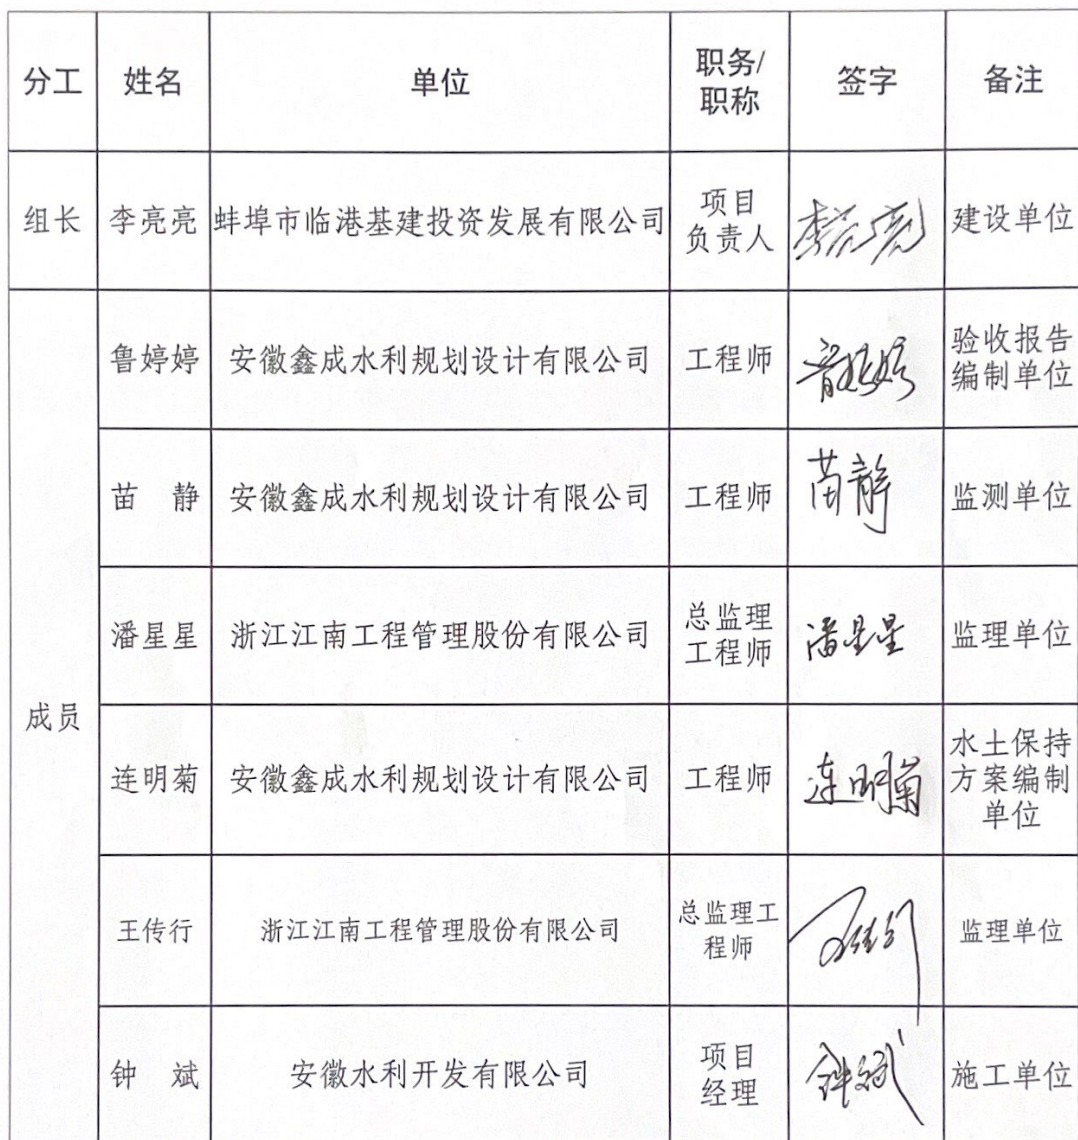 分工 姓名 单位 职务/职称 签字 备注
组长 李亮亮 蚌埠市临港基建投资发展有限公司 项目负责人 李亮亮 建设单位
成员
鲁婷婷 安徽鑫成水利规划设计有限公司 工程师 鲁婷婷 验收报告编制单位
苗 静 安徽鑫成水利规划设计有限公司 工程师 苗静 监测单位
潘星星 浙江江南工程管理股份有限公司 总监理工程师 潘星星 监理单位
连明菊 安徽鑫成水利规划设计有限公司 工程师 连明菊 水土保持方案编制单位
王传行 浙江江南工程管理股份有限公司 总监理工程师 王传行 监理单位
钟 斌 安徽水利开发有限公司 项目经理 钟斌 施工单位